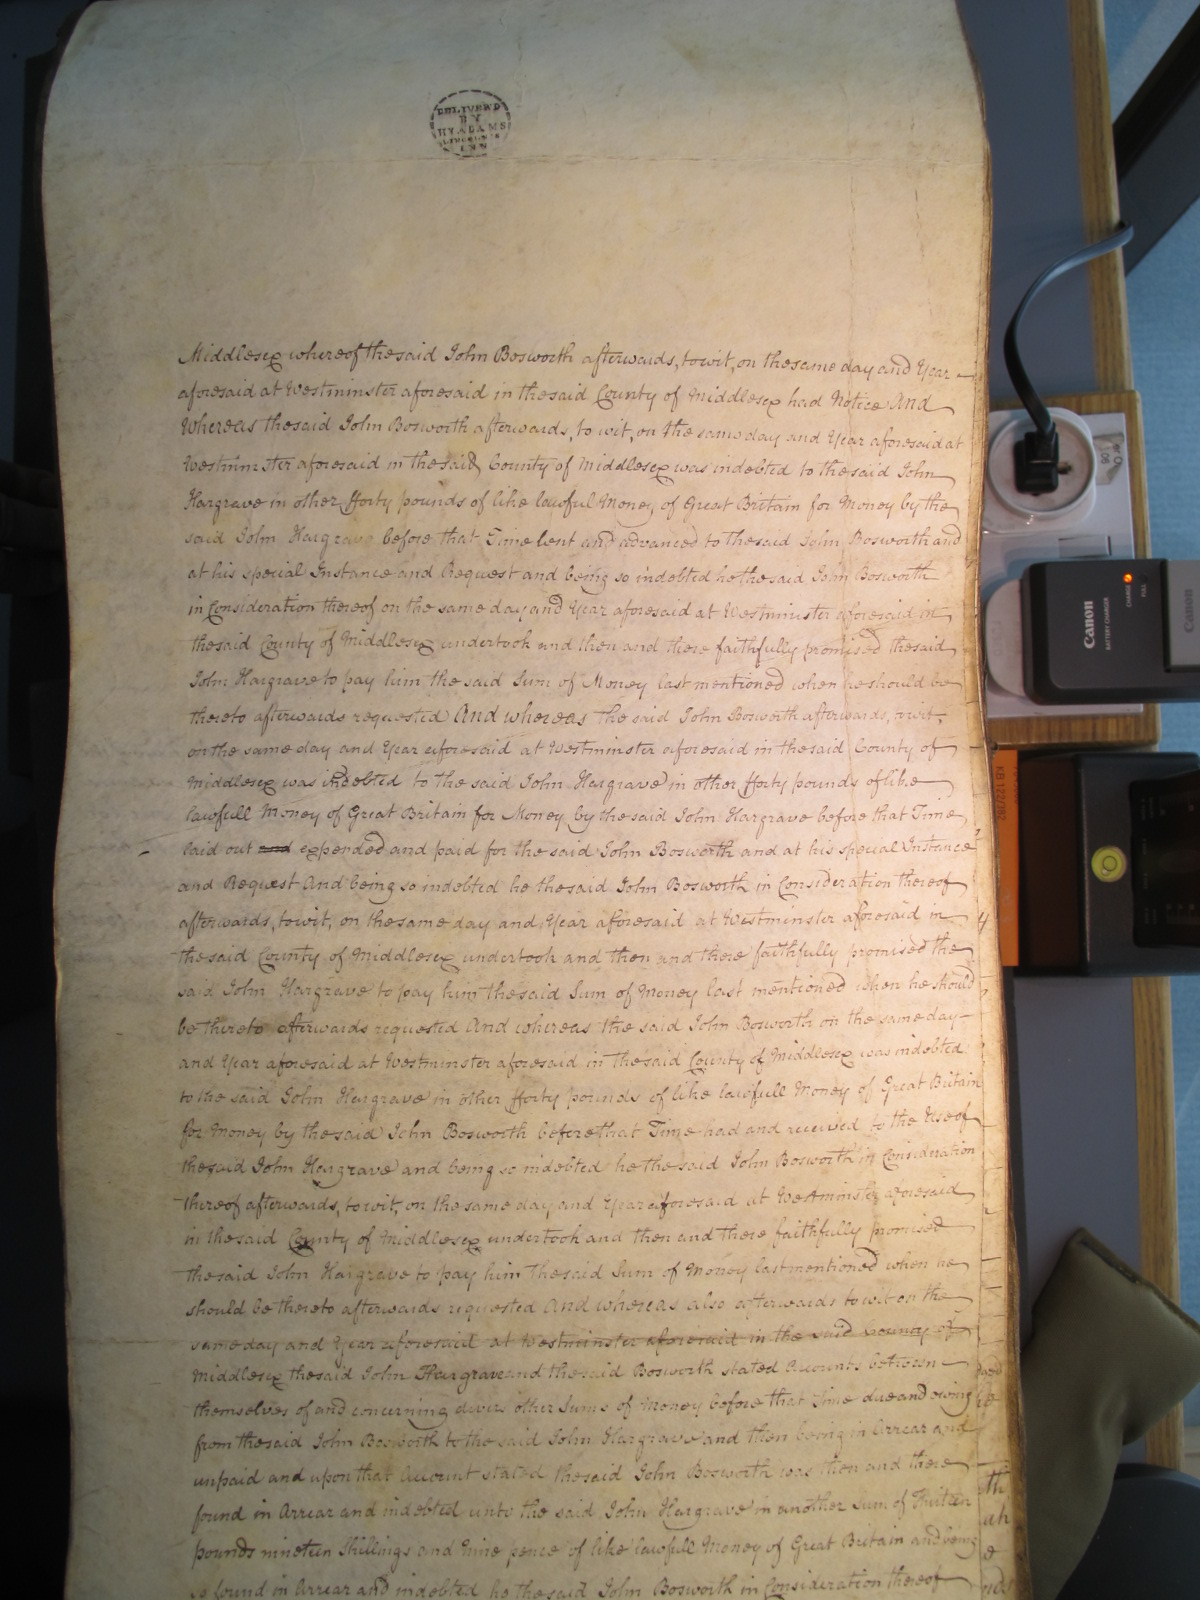 DELIVERD
BY
HY. ADAMS
INN
Middlesex whereof the said John Bosworth afterwards, to wit, on the same day and Year
aforesaid at Westminster aforesaid in the said County of Middlesex had Notice And
Whereas the said John Bosworth afterwards, to wit, on the same day and Year aforesaid at
Westminster aforesaid in the said County of Middlesex was indebted to the said John
Hargrave in other fforty pounds of like lawful Money of Great Britain for Money by the
said John Hargrave before that Time lent and advanced to the said John Bosworth and
at his special Instance and Request and being so indebted he the said John Bosworth
in Consideration thereof on the same day and Year aforesaid at Westminster aforesaid in
the said County of Middlesex undertook and then and there faithfully promised the said
John Hargrave to pay him the said Sum of Money last mentioned when he should be
thereto afterwards requested And whereas the said John Bosworth afterwards, to wit,
on the same day and Year aforesaid at Westminster aforesaid in the said County of
Middlesex was indebted to the said John Hargrave in other fforty pounds of like
lawfull Money of Great Britain for Money by the said John Hargrave before that Time
laid out and expended and paid for the said John Bosworth and at his special Instance
and Request And being so indebted he the said John Bosworth in Consideration thereof
afterwards, to wit, on the same day and Year aforesaid at Westminster aforesaid in
the said County of Middlesex undertook and then and there faithfully promised the
said John Hargrave to pay him the said Sum of Money last mentioned when he should
be thereto afterwards requested And whereas the said John Bosworth on the same day
and Year aforesaid at Westminster aforesaid in the said County of Middlesex was indebted
to the said John Hargrave in other fforty pounds of like lawfull Money of Great Britain
for Money by the said John Bosworth before that Time had and received to the Use of
the said John Hargrave and being so indebted he the said John Bosworth in Consideration
thereof afterwards, to wit, on the same day and Year aforesaid at Westminster aforesaid
in the said County of Middlesex undertook and then and there faithfully promised
the said John Hargrave to pay him the said Sum of Money last mentioned when he
should be thereto afterwards requested And whereas also afterwards to wit on the
same day and Year aforesaid at Westminster aforesaid in the said County of
Middlesex the said John Hargrave and the said Bosworth stated Accounts between
themselves of and concerning divers other Sums of Money before that Time due and owing
from the said John Bosworth to the said John Hargrave and then being in Arrear and
unpaid and upon that Account stated the said John Bosworth was then and there
found in Arrear and indebted unto the said John Hargrave in another Sum of
pounds nineteen Shillings and Nine pence of like lawfull Money of Great Britain and being
so found in Arrear and indebted he the said John Bosworth in Consideration thereof
Canon
BATTERY CHARGER
CHARGE
FULL
Canon
KB 122/182